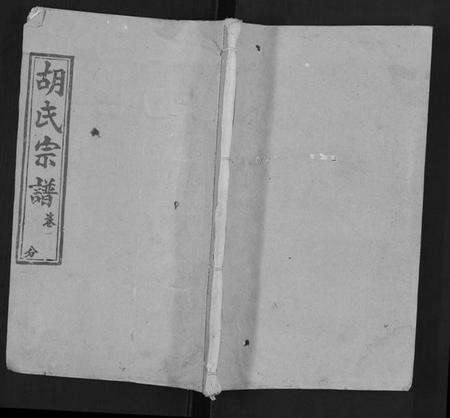 胡氏宗譜
卷一
分